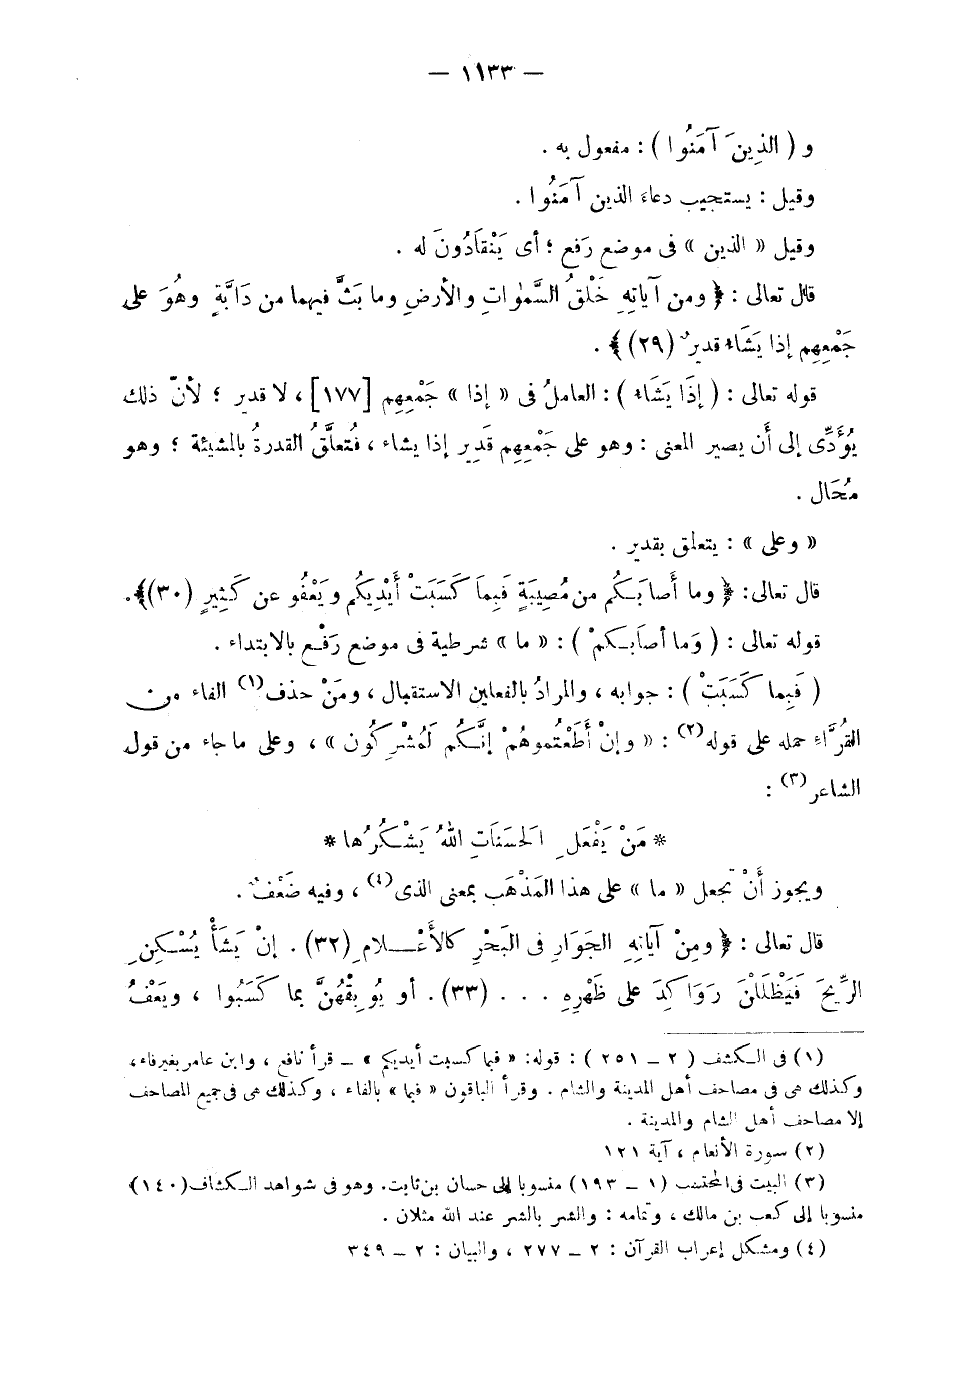 — ١١٣٣ —
و ( الذِينَ آمَنُوا ) : مفعول به .
وقيل : يستجيب دعاءَ الذين آمَنُوا .
وقيل « الذين » فى موضع رَفع ؛ أى يَنْقَادُونَ له .
قال تعالى : ﴿ ومن آياتِهِ خَلْقُ السَّمٰواتِ والأرضِ وما بَثَّ فيهما من دَابَّةٍ وهُوَ على
جَمْعِهِم إذا يَشَاء قديرٌ (٢٩) ﴾ .
قوله تعالى : ( إذَا يَشَاء ) : العاملُ فى « إذا » جَمْعِهِم [١٧٧] ، لا قدير ؛ لأنّ ذلك
يُؤَدِّى إلى أَن يصير المعنى : وهو على جَمْعِهِم قَدِير إذا يشاء ، فَتُعلَّقُ القدرةُ بالمشيئة ؛ وهو
مُحَال .
« وعلى » : يتعلق بقدير .
قال تعالى: ﴿ وما أصابَكُم من مُصِيبَةٍ فَبِمَا كَسَبَتْ أَيْدِيكُم ويَعْفُو عن كَثِيرٍ (٣٠)﴾.
قوله تعالى : ( وَما أصابَكمْ ) : « ما » شرطية فى موضع رَفْع بالابتداء .
( فَبِما كَسَبَتْ ) : جوابه ، والمرادُ بالفعلين الاستقبال ، ومَنْ حذف(١) الفاء من
القُرَّاءِ حمله على قوله(٢) : « وإنْ أَطَعْتُموهُمْ إنَّكُم لَمُشْرِكُون » ، وعلى ما جاء من قول
الشاعر(٣) :
* مَنْ يَفْعَلِ الحَسَنَاتِ اللهُ يَشْكُرُها *
ويجوز أَنْ تجعل « ما » على هذا المَذْهَب بمعنى الذى(٤) ، وفيه ضَعْفٌ .
قال تعالى : ﴿ ومِنْ آياتِهِ الجَوَارِ فى البَحْرِ كالأَعْلامِ (٣٢) . إنْ يَشَأْ يُسْكِنِ
الرِّيحَ فَيَظْلَلْنَ رَوَاكِدَ على ظَهْرِهِ . . . (٣٣). أو يُوبِقْهُنَّ بما كَسَبُوا ، ويَعْفُ
(١) فى الكشف ( ٢ – ٢٥١ ) : قوله: « فبما كسبت أيديكم » – قرأ نافع ، وابن عامر بغير فاء ،
وكذلك هى فى مصاحف أهل المدينة والشام . وقرأ الباقون « فبما » بالفاء ، وكذلك هى فى جميع المصاحف
إلا مصاحف أهل الشام والمدينة .
(٢) سورة الأنعام ، آية ١٢١
(٣) البيت فى المحتسب (١ – ١٩٣) منسوبا إلى حسان بن ثابت. وهو فى شواهد الكشاف (١٤٠)
منسوبا إلى كعب بن مالك ، وتمامه : والشر بالشر عند الله مثلان .
(٤) ومشكل إعراب القرآن : ٢ – ٢٧٧ ، والبيان : ٢ – ٣٤٩